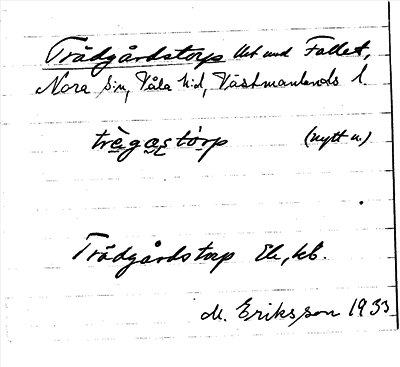 Trädgårdstorp till under Fallet,
Nora s:n, Våla h:d, Västmanlands l.
trègastórp (nytt n.)
Trädgårdstorp Ek., kb.
M. Eriksson 1933